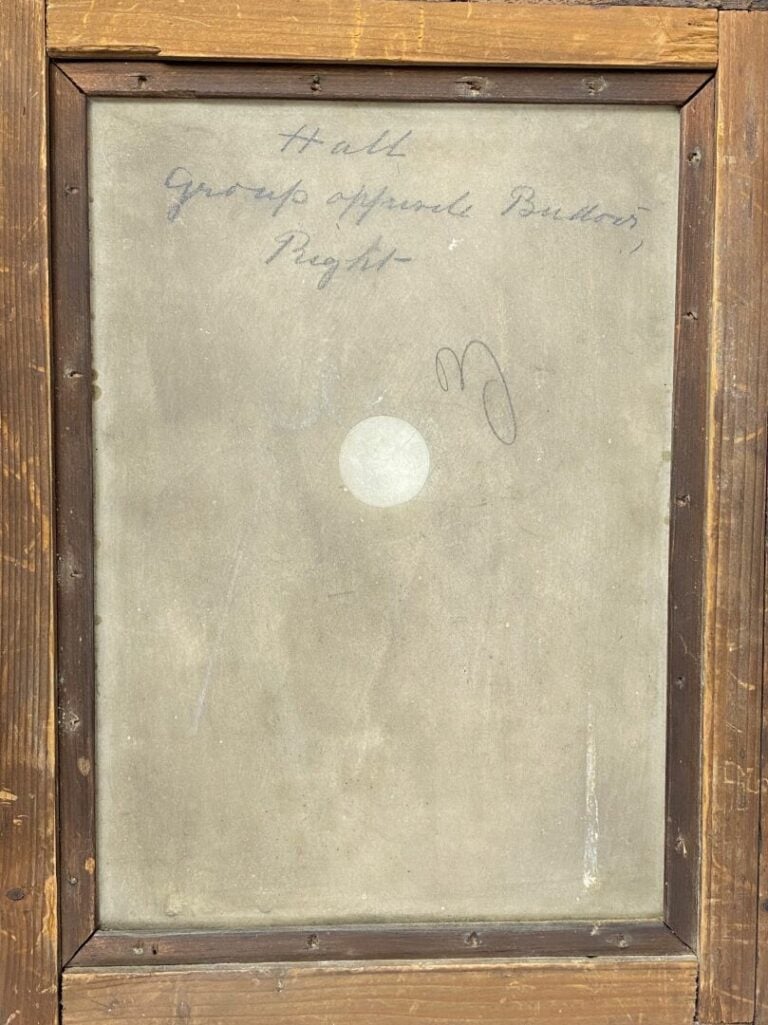 Hall
Group opposite Budoir,
Right